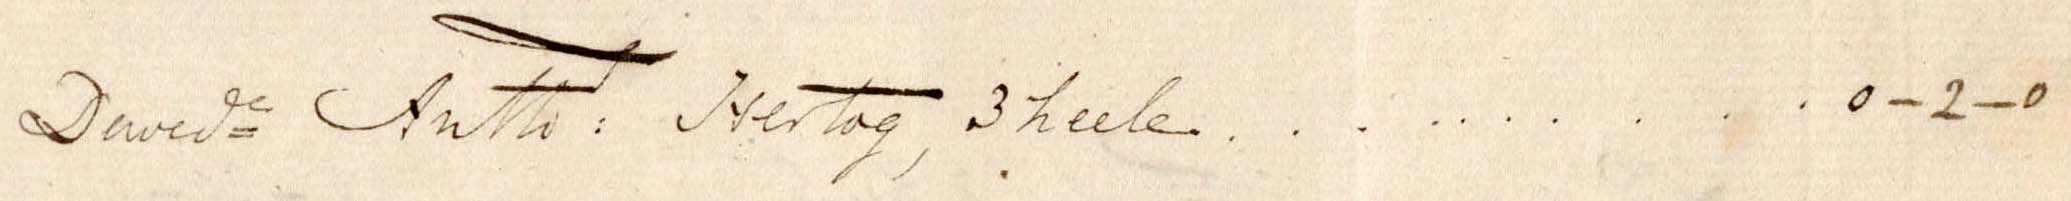 De wed:e Antho: Hertog, 3 heele . . . . . . . . . . . 0 - 2 - 0